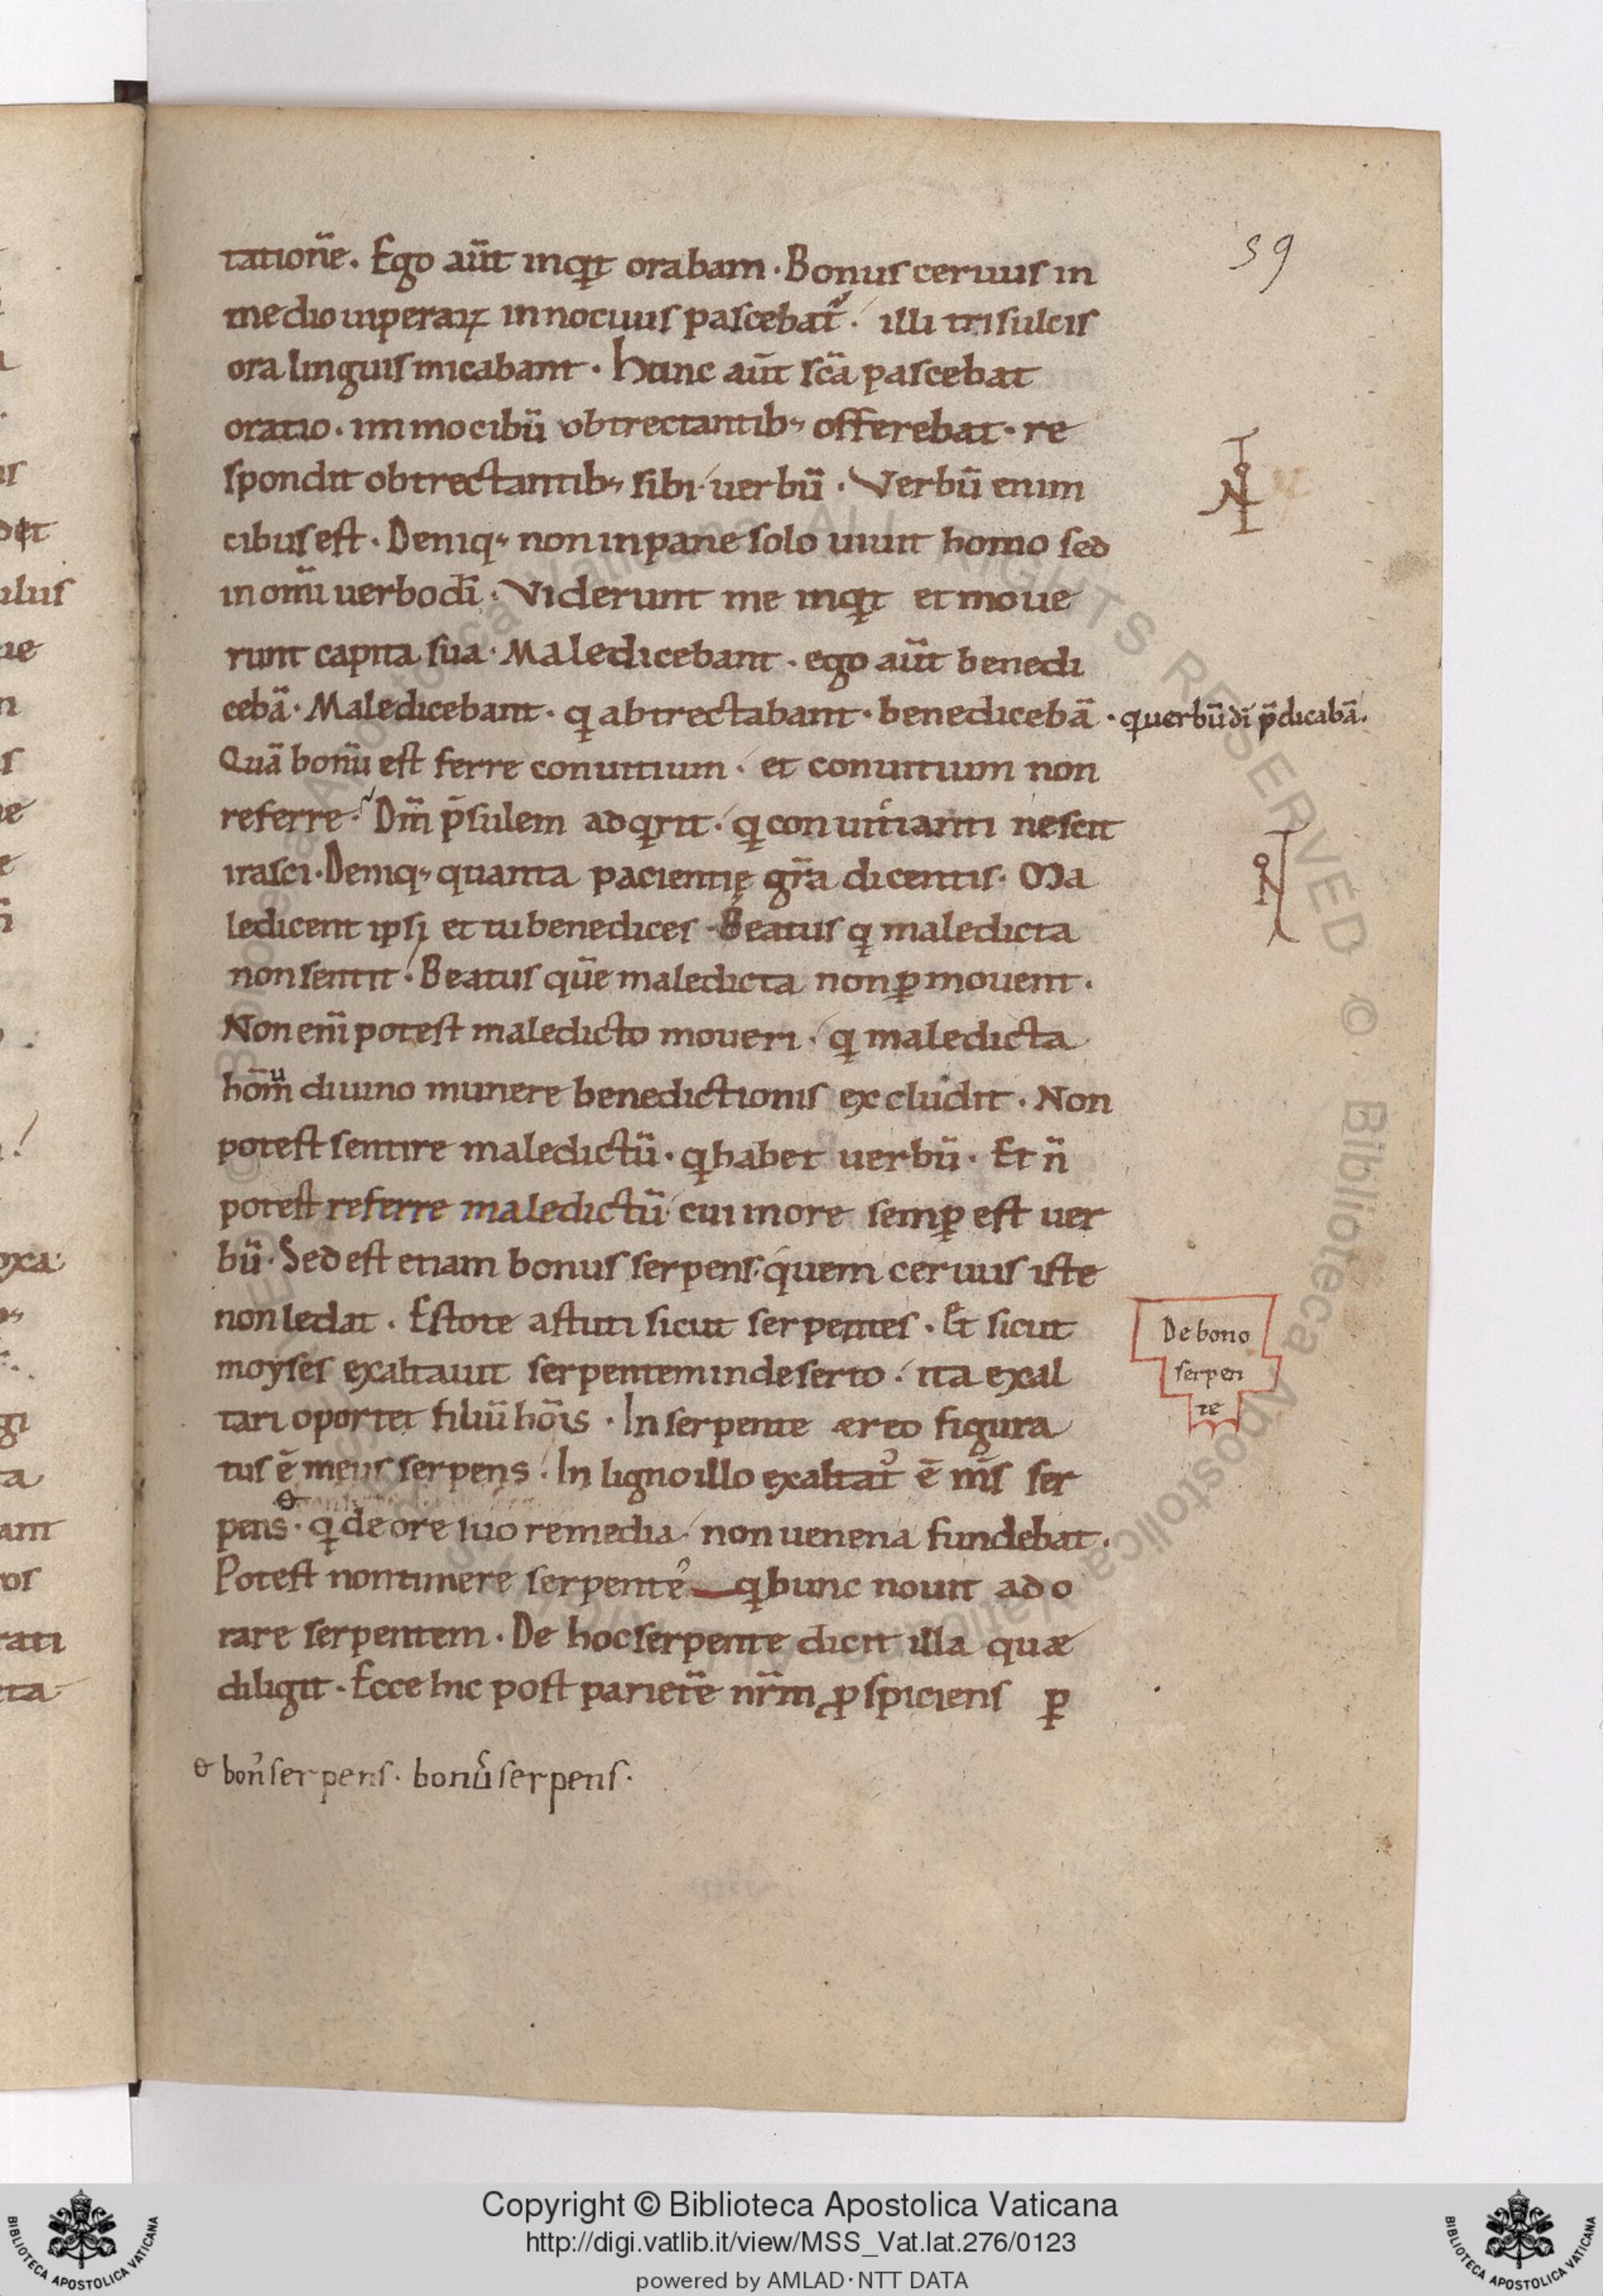 59
tationē. Ego aūt inqͥt orabam. Bonus ceruus in
medio uiperaꝝ innocuus pascebat᷑. illi trisulcis
ora linguis micabant. hunc aūt sc̄a pascebat
oratio. immo cibū obtrectantib; offerebat. re
spondit obtrectantib; sibi uerbū. Verbū enim
cibus est. Deniq; non in pane solo uiuit homo sed
in om̄i uerbo dī. Viderunt me inqͥt et moue
runt capita sua. Maledicebant. ego aūt benedi
cebā. Maledicebant. qͥ abtrectabant. benedicebā. qͥ uerbū dī p̄dicabā.
Quā bonū est ferre conuitium. et conuitium non
referre. Dm̄ p̄sulem adqͥrit. qͥ conuitianti nescit
irasci. Deniq; quanta pacientię gr̄a dicentis. Ma
ledicent ipsi et tu benedices. Beatus qͥ maledicta
non sentit. Beatus quē maledicta non ꝑmouent.
Non enī potest maledicto moueri. qͥ maledicta
hom̄ͧ diuino munere benedictionis excludit. Non
potest sentire maledictū. qͥ habet uerbū. Et n̄
potest referre maledictū cui more semꝑ est uer
bū. Sed est etiam bonus serpens. quem ceruus iste
non ledat. Estote astuti sicut serpentes. Et sicut
moyses exaltauit serpentem in deserto. ita exal
tari oportet filiū hōis. In serpente æreo figura
tus ē meus serpens. In ligno illo exaltat᷒ ē m̄s ser
pens. qͥ de ore suo remedia non uenena fundebat.
Potest non timere serpentē qͥ hunc nouit ado
rare serpentem. De hoc serpente dicit illa quæ
diligit. Ecce hic post parietē nr̄m ꝓspiciens ꝑ
bon᷒ serpens. bon᷒ serpens.
De bono
serpen
te
Copyright © Biblioteca Apostolica Vaticana
http://digi.vatlib.it/view/MSS_Vat.lat.276/0123
powered by AMLAD·NTT DATA
BIBLIOTECA APOSTOLICA VATICANA
BIBLIOTECA APOSTOLICA VATICANA